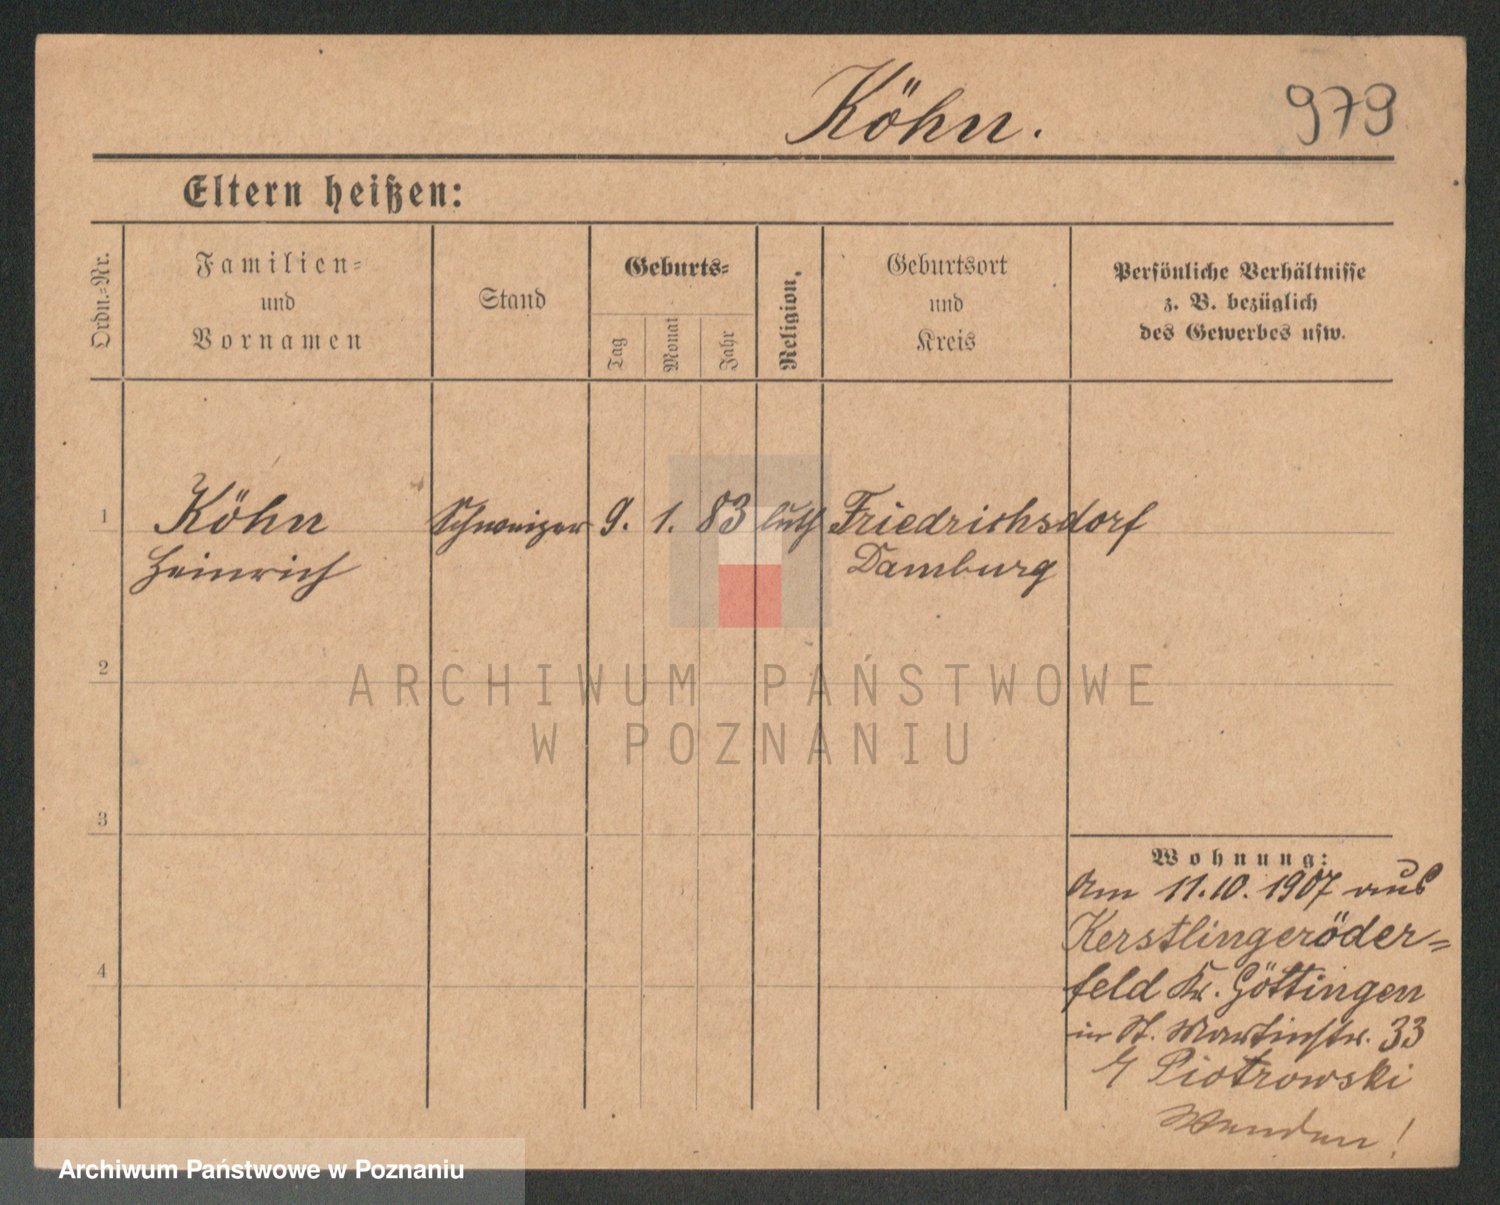 Köhn.
979
Eltern heißen:
Ordn.-Nr.
Familien-
und
Vornamen
Stand
Geburts-
Tag
Monat
Jahr
Religion,
Geburtsort
und
Kreis
Persönliche Verhältnisse
z. B. bezüglich
des Gewerbes usw.
1 Köhn Schweizer 9. 1. 83 luth Friedrichsdorf
Heinrich Damburg
2
3
4
Wohnung:
Am 11.10.1907 aus
Kerstlingeröder-
feld Kr. Göttingen
in St. Martinstr. 33
Piotrowski
Wenden!
ARCHIWUM PAŃSTWOWE
W POZNANIU
Archiwum Państwowe w Poznaniu